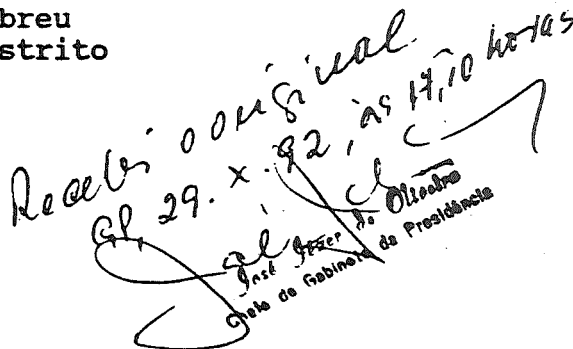 breu
strito
Recebi o original.
GP, 29.X.92, às 17,10 horas
José de Oliveira
Chefe do Gabinete da Presidência